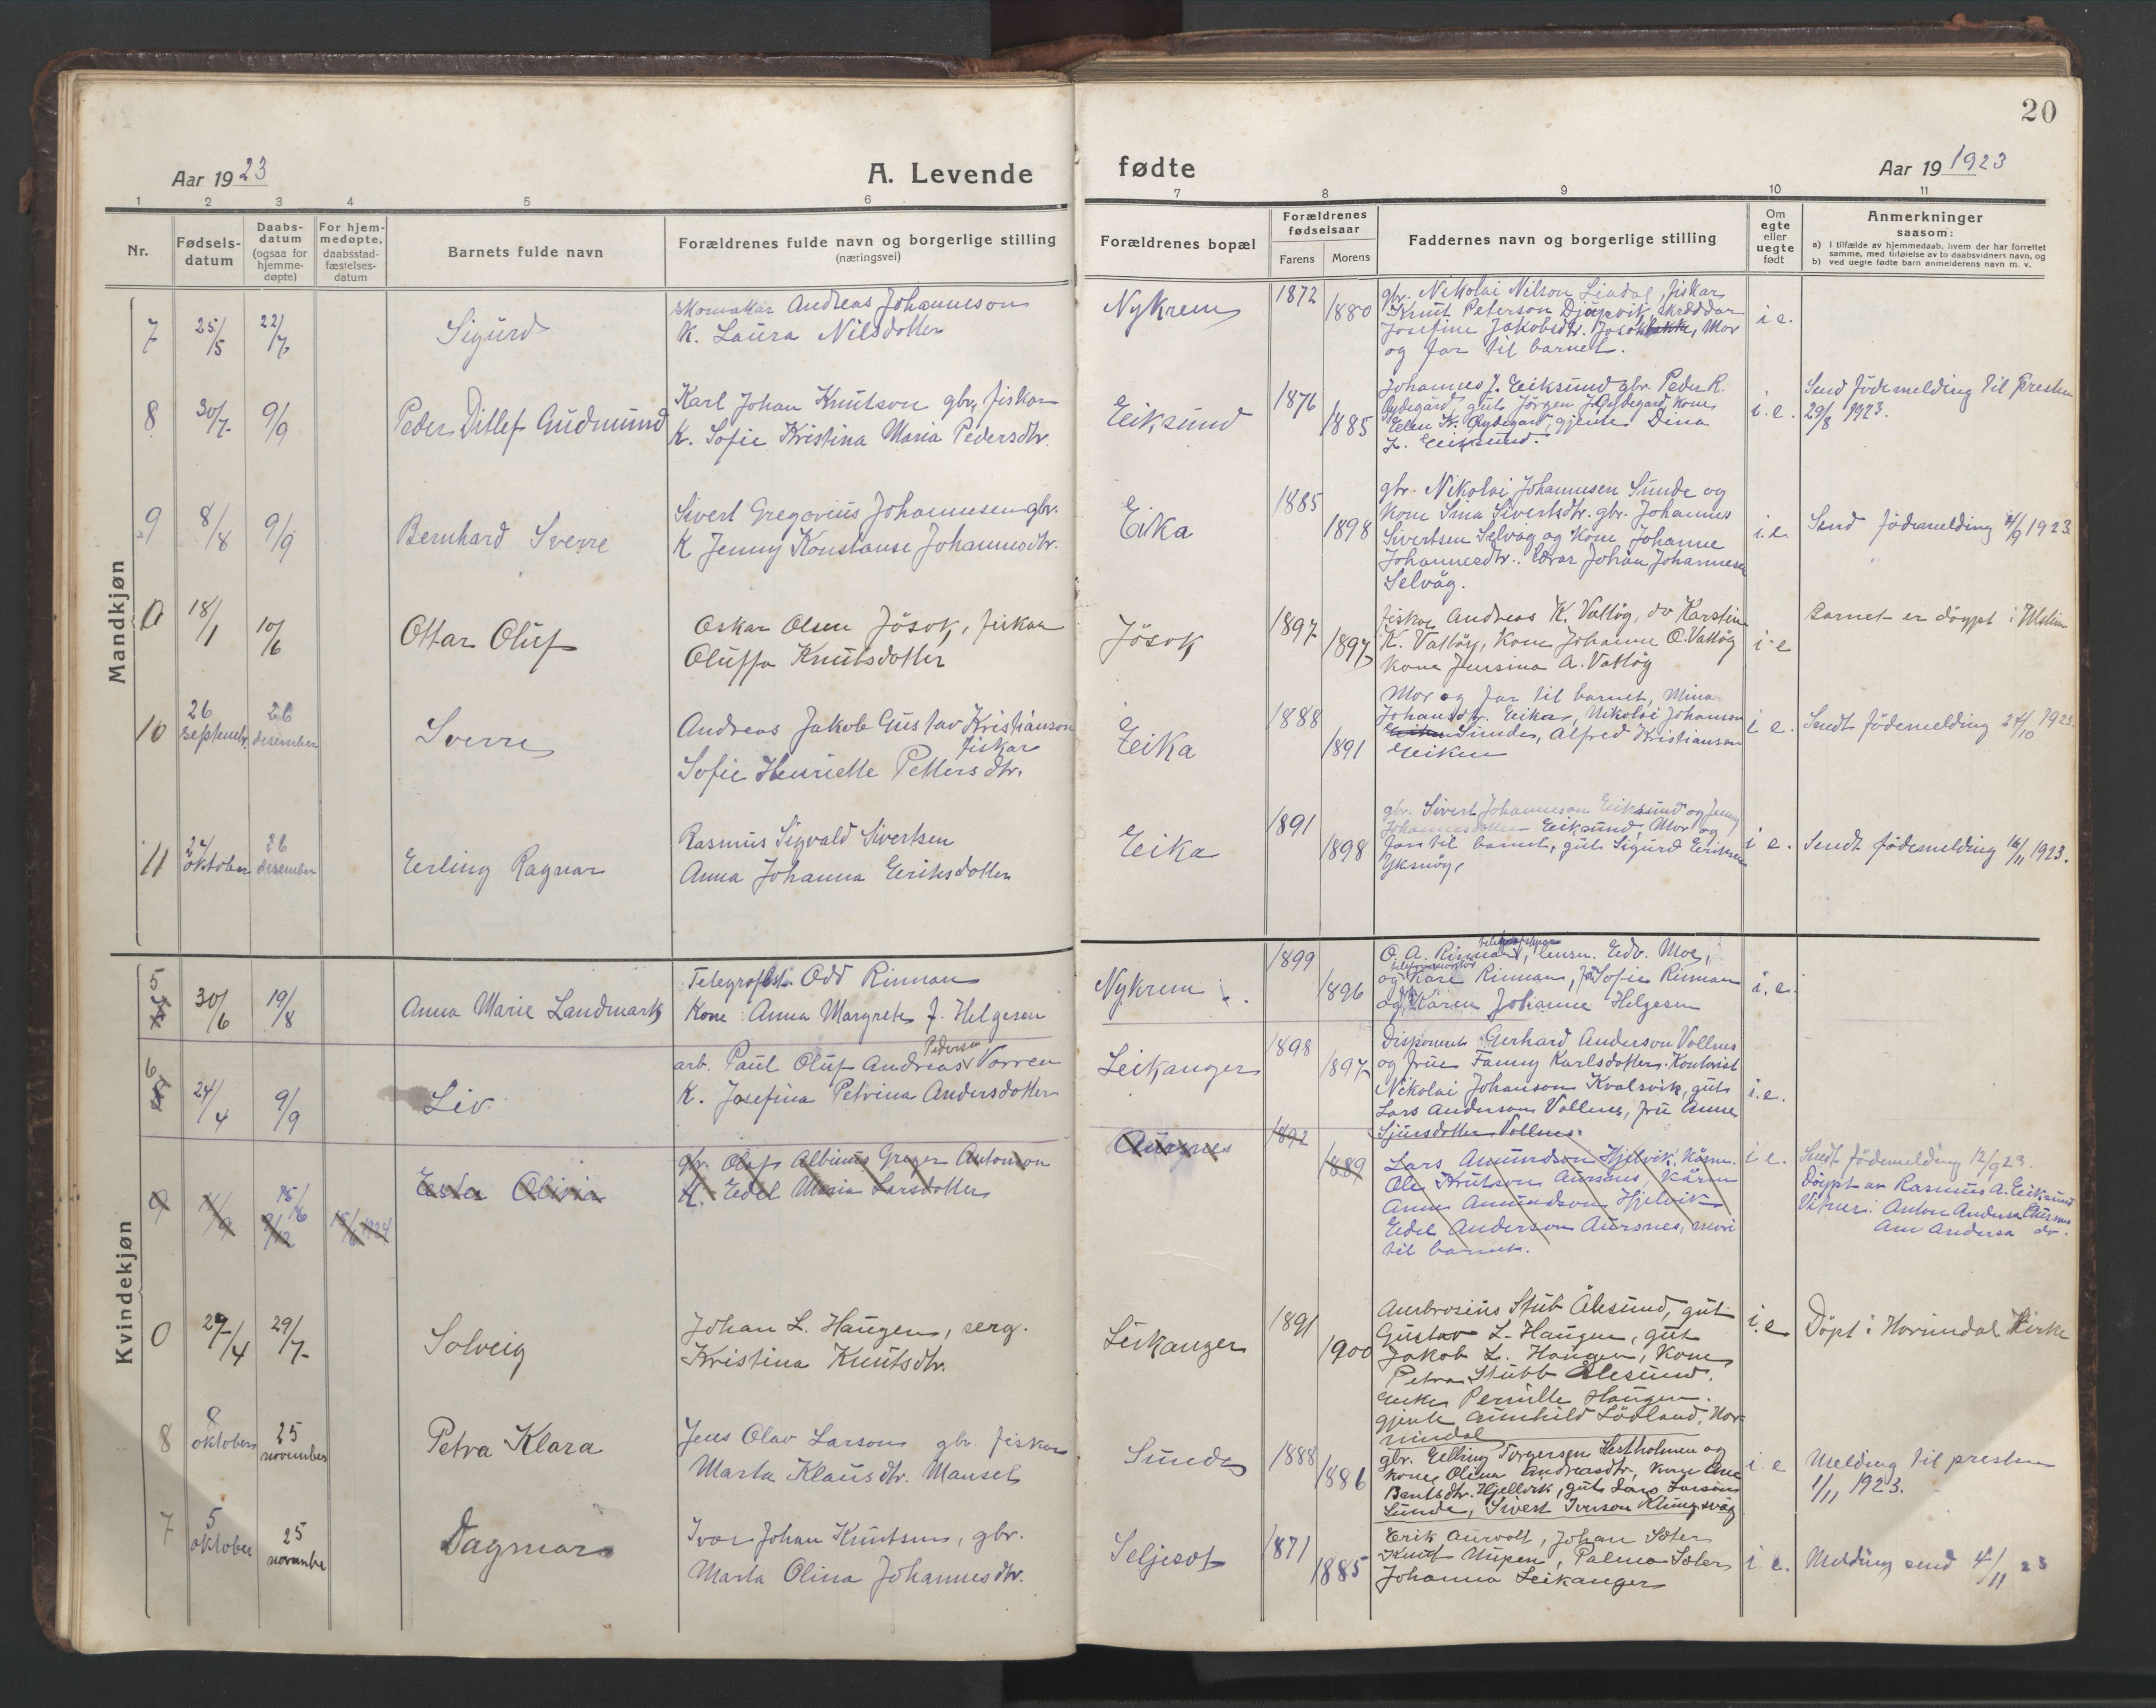 20
Aar 1923
A. Levende
fødte
Aar 19 1923
1 2 3 4 5 6 7 8 9 10 11
Nr.
Fødsels-
datum
Daabs-
datum
(ogsaa for
hjemme-
døpte)
For hjem-
medøpte,
daabsstad-
fæstelses-
datum
Barnets fulde navn
Forældrenes fulde navn og borgerlige stilling
(næringsvei)
Forældrenes bopæl
Forældrenes
fødselsaar
Farens Morens
Faddernes navn og borgerlige stilling
Om
egte
eller
uegte
født
Anmerkninger
saasom:
a) i tilfælde av hjemmedaab, hvem der har forrettet
samme, med tilføielse av to daabsvidners navn, og
b) ved uegte fødte barn anmelderens navn m. v.
Mandkjøn
7 25/5 22/7 Sigurd
Skomakar Andreas Johanneson
K. Laura Nilsdotter
Nykrem 1872 1880
gbr. Nikolai Nilson Lindal, fiskar
Knut Peterson Djupvik, skræddar
Josefine Jakobsdtr. Jøsok, Mor
og far til barnet.
i e.
8 30/7 9/9 Peder Ditlef Gudmund
Karl Johan Knutson gbr, fiskar
K. Sofie Kristina Maria Pedersdtr.
Eiksund 1876 1885
Johannes J. Eiksund gbr. Peder R.
Øydegård, gut Jörgen J. Øydegård, Kone
Ellen K. Øydegård, gjente Dina
L. Eiksund.
i. e.
Send födemelding til Presten
29/8 1923.
9 8/8 9/9 Bernhard Sverre
Sivert Gregorius Johannesen gbr.
K Jenny Konstanse Johannesdtr.
Eika 1885 1898
gbr. Nikolai Johannesen Sunde og
Kone Sina Sivertsdtr. gbr. Johannes
Sivertsen Selvåg og Kone Johanne
Johannesdtr. Lærar Johan Johannesen
Selvåg.
i. e.
Send födemelding 4/9 1923.
0 18/1 10/6 Ottar Oluf
Oskar Olsen Jösok, fiskar
Oluffa Knutsdotter
Jösok 1897 1897
fiskar Andreas K. Vattöy, do Karstein
K. Vattöy, Kone Johanne O. Vattöy
Kone Jensina A. Vattöy
i e
Barnet er döypt i Ulstein
10 26 september 26 desember Sverre
Andreas Jakob Gustav Kristianson
fiskar
Sofie Henriette Pettersdtr.
Eika 1888 1891
Mor og far til barnet, Mina
Johansdtr. Eika, Nikolai Johanson
Sunde, Alfred Kristianson
Eiken
i e.
Sendt födemelding 24/10 1923.
11 24 oktober 26 desember Erling Ragnar
Rasmus Sigvald Sivertsen
Anna Johanna Eriksdotter
Eika 1891 1898
gbr. Sivert Johanneson Eiksund og Jenny
Johannesdotter Eiksund, Mor og
far til barnet, gut Sigurd Eriksen
Yksnöy,
i e.
Sendt födemelding 16/11 1923.
Kvindekjøn
5 30/6 19/8 Anna Marie Landmark
Telegrafbst. Odd Rinnan
Kone Anna Margrete J. Helgesen
Nykrem 1899 1896
O. A. Rinnan, lensm. Edv. Moe,
og Kåre Rinnan, frk Sofie Rinnan
og Karen Johanne Helgesen
i. e.
6 24/4 9/9 Liv
Pedersen
arb. Paul Oluf Andreas Vorren
K. Josefina Petrina Andersdotter
Leikanger 1898 1897
Disponent Gerhard Anderson Vollnes
og frue Fanny Karlsdotter. Kontorist
Nikolai Johanson Kvalsvik, gut
Lars Anderson Vollnes, fru Anne
Sjursdotter Vollnes.
i. e.
9 11/9 15/6 9/12 15/6 1924 Ester Olivia
gbr. Olaf Albinus Greger Antonson
K. Edel Maria Larsdotter
Aursnes 1892 1889
Lars Amundson Hjelvik, Kårm.
Ole Knutson Aursnes, Kårm
Anna Amundson Hjelvik
Edel Anderson Aursnes, mor
til barnet.
i e.
Sendt födemelding 12/9 23.
Döypt av Rasmus A. Eiksund
Vitner: Anton Andersa Aursnes
Ane Andersa do.
0 29/4 29/7 Solveig
Johan L. Haugen, serg.
Kristina Knutsdtr.
Leikanger 1891 1900
Ambrosius Stub Ålesund, gut
Gustav L. Haugen, gut
Jakob L. Haugen, Kone
Petra Stubb Ålesund,
Enke Pernille Haugen.
gjente Aunhild Lödland, Hor-
nindal
i. e
Döpt i Hornindal Kirke
8 8 oktober 25 november Petra Klara
Jens Olav Larson gbr. fiskar
Marta Klausdtr. Manset
Sunde 1888 1886
gbr. Elling Torgersen Hestholmen og
kone Olina Andreasdtr, Kone Ane
Bentsdtr. Hjellvik, gut Lars Larson
Sunde, Sivert Iverson Klungsvåg
i e
Melding til presten
1/11 1923.
7 5 oktober 25 november Dagmar
Ivar Johan Knutson, gbr.
Marta Olina Johannesdtr.
Seljeset 1871 1885
Erik Aurvoll, Johan Sæter
Knut Nupen, Palma Sæter
Johanna Leikanger
i e.
Melding send 4/11 23